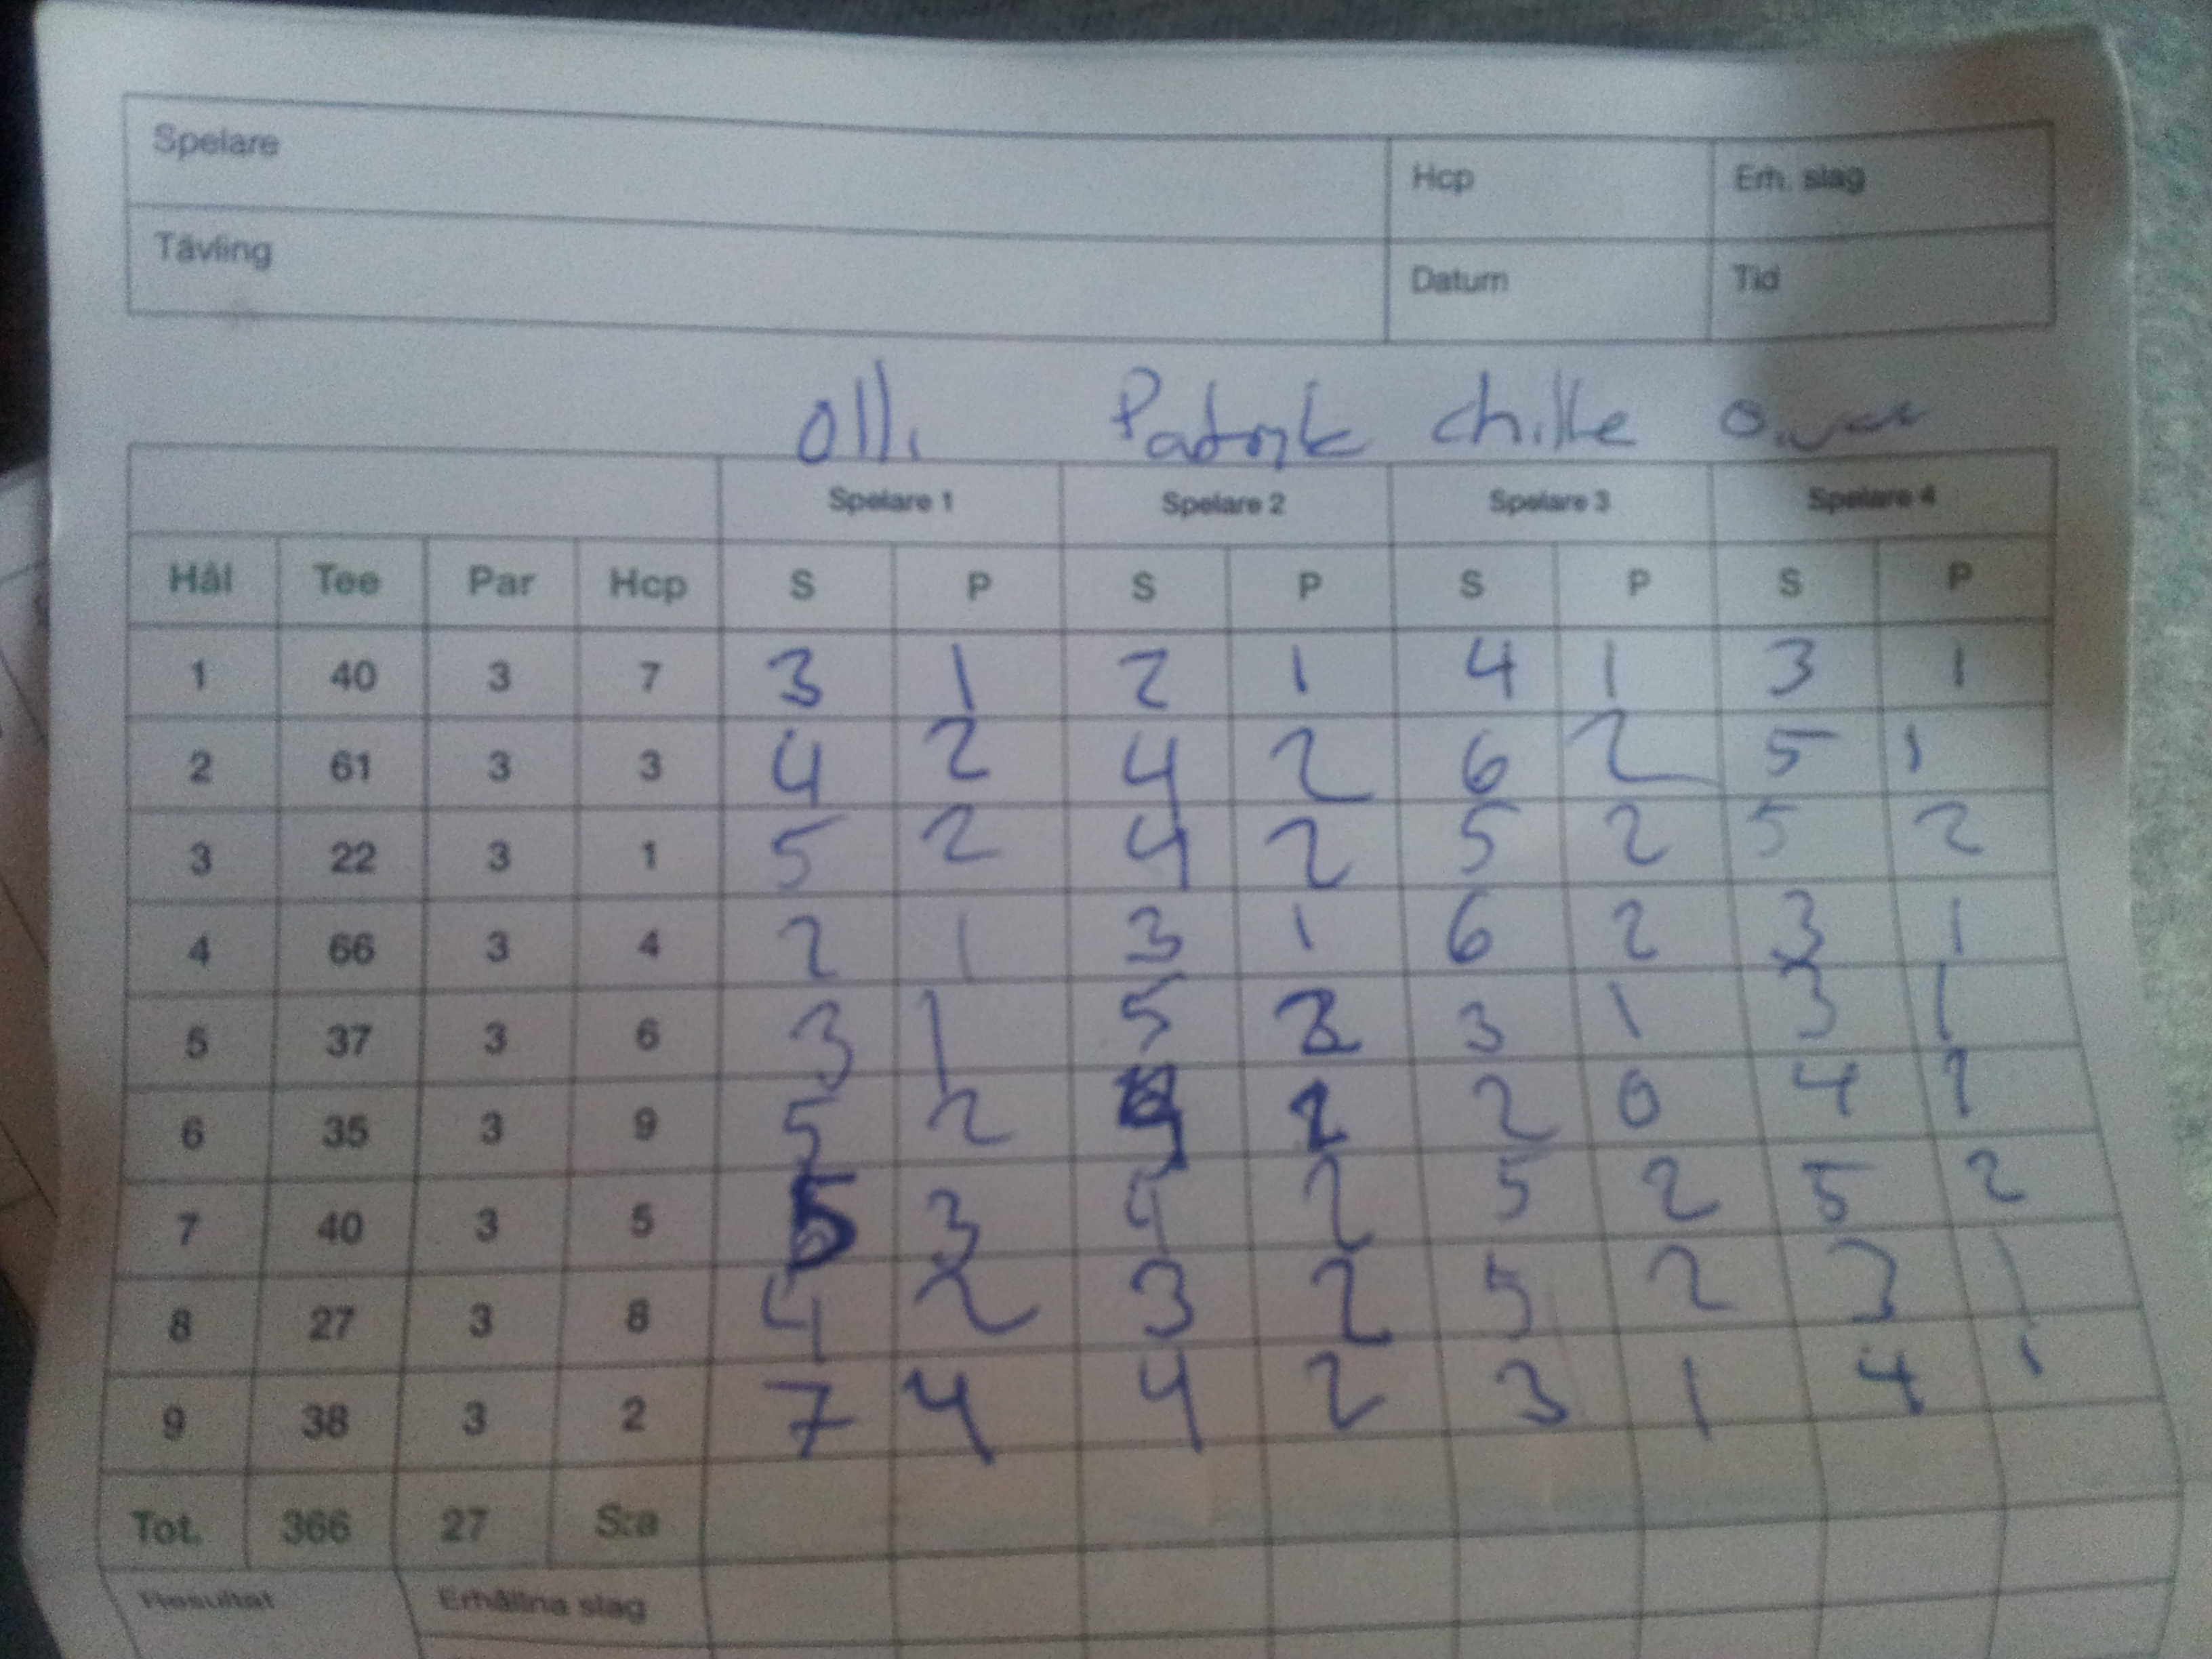 Spelare Hcp Erh. slag
Tävling Datum Tid
Olli Patrik chille
Spelare 1 Spelare 2 Spelare 3 Spelare 4
Hål Tee Par Hcp S P S P S P S P
1 40 3 7 3 1 2 1 4 1 3 1
2 61 3 3 4 2 4 2 6 2 5 1
3 22 3 1 5 2 4 2 5 2 5 2
4 66 3 4 2 1 3 1 6 2 3 1
5 37 3 6 3 1 5 2 3 1 3 1
6 35 3 9 5 2 2 0 4
7 40 3 5 5 3 4 2 5 2 5 2
8 27 3 8 4 2 3 2 5 2 3 1
9 38 3 2 7 4 4 2 3 1 4 1
Tot. 366 27 S:a
Resultat Erhållna slag